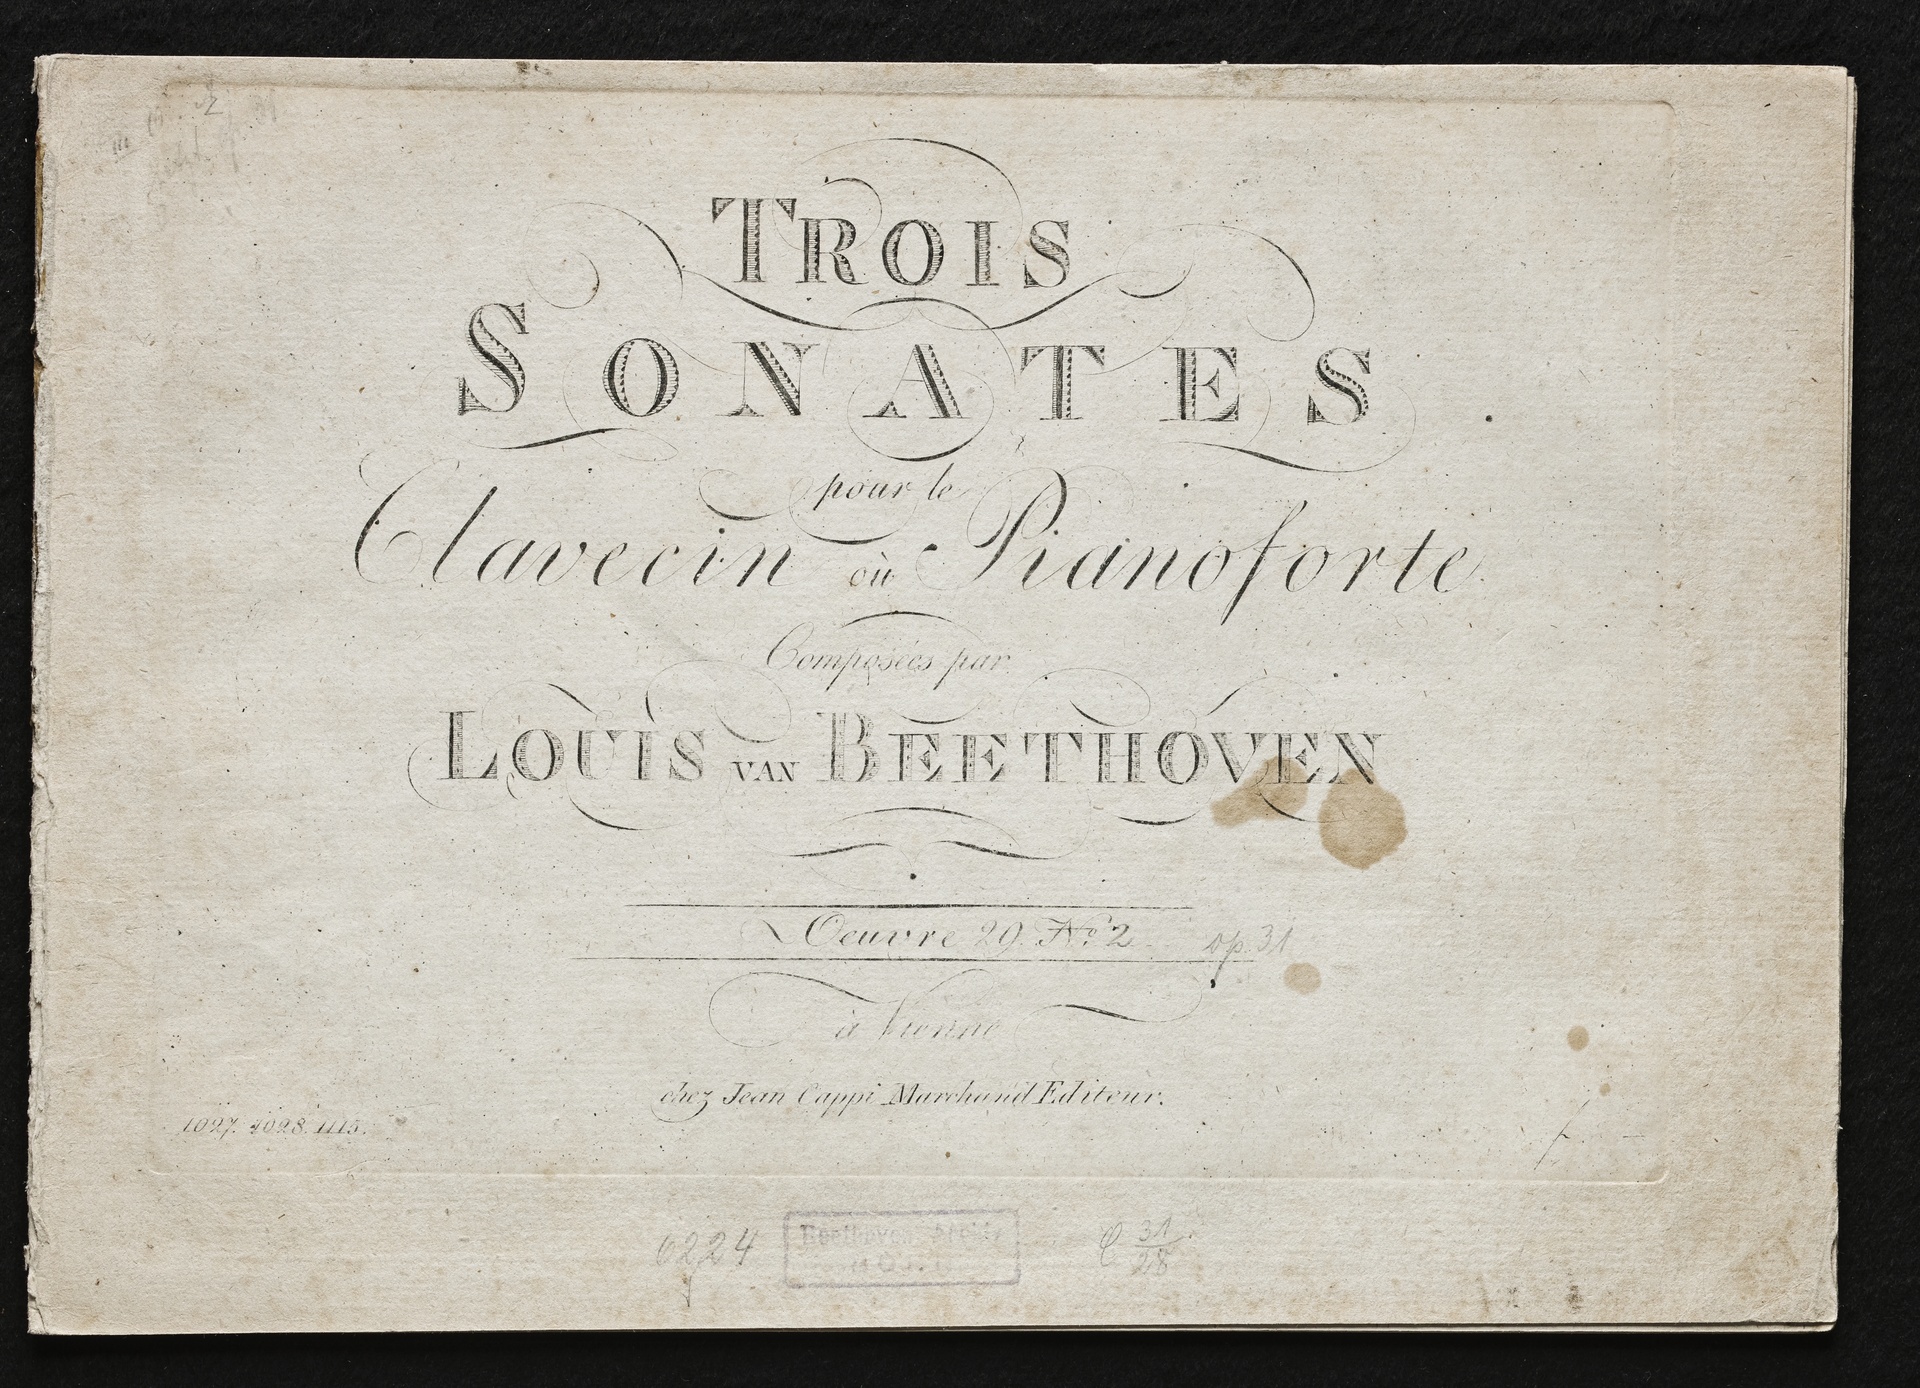 TROIS
SONATES
pour le
Clavecin où Pianoforte
Composées par
LOUIS VAN BEETHOVEN
Oeuvre 29. No. 2. op. 31
à Vienne
chez Jean Cappi Marchand Editeur.
1027. 1028. 1115.
6224
Beethoven
C 31/28